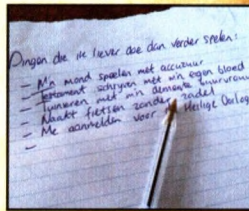 Dingen die ik liever doe dan verder spelen:
- M'n mond spoelen met accuzuur
- Testament schrijven met m'n eigen bloed
- Tuinieren met m'n demente buurvrouw
- Naakt fietsen zonder zadel
- Me aanmelden voor Heilige Oorlog
-